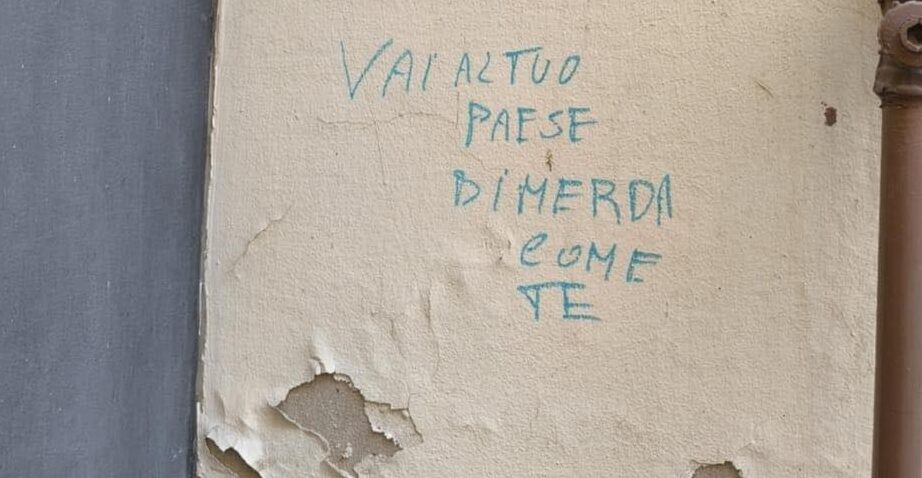 VAI AL TUO
PAESE
DI MERDA
COME
TE